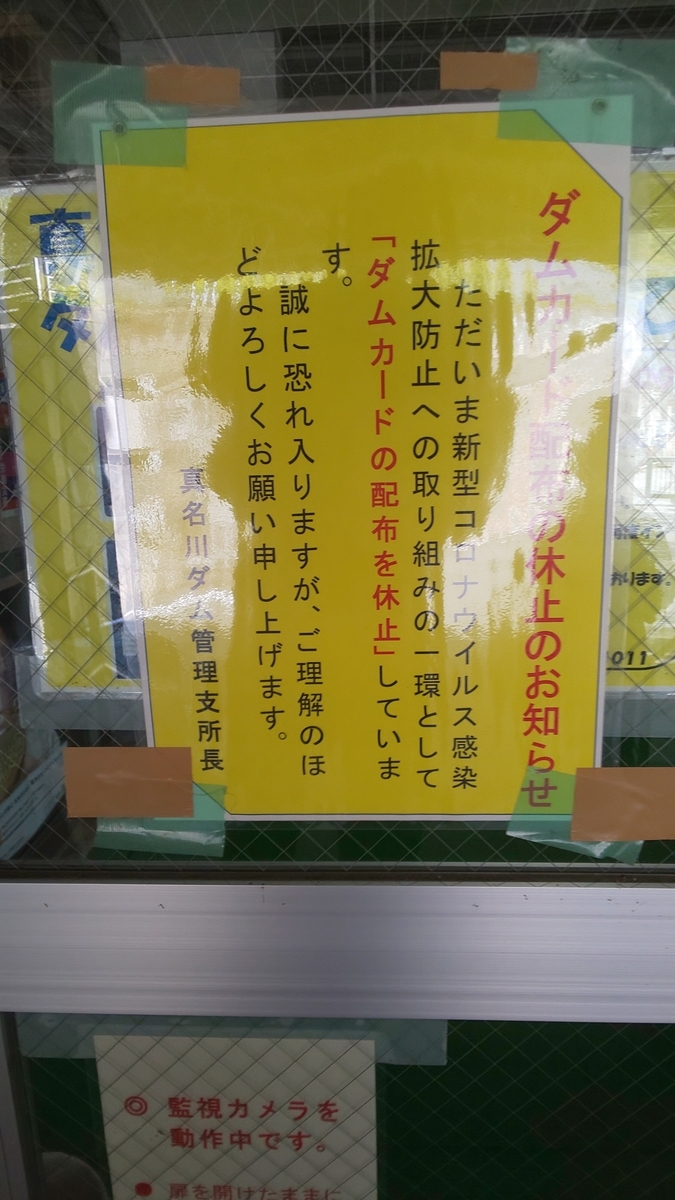 ダムカード配布の休止のお知らせ
ただいま新型コロナウイルス感染
拡大防止への取り組みの一環として
「ダムカードの配布を休止」していま
す。
誠に恐れ入りますが、ご理解のほ
どよろしくお願い申し上げます。
真名川ダム管理支所長
真名
おります。
011
◎ 監視カメラを
動作中です。
● 扉を開けたままに